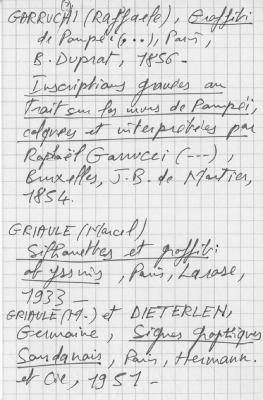 GARRUCHI (Raffaele), Graffiti
de Pompéi (...), Paris,
B. Duprat, 1856 -
Inscriptions gravées au
trait sur les murs de Pompéi,
calquées et interprétées par
Raphaël Garrucci (---),
Bruxelles, J.B. de Mortier,
1854.
GRIAULE (Marcel)
Silhouettes et graffiti
abyssins, Paris, Larose,
1933 -
GRIAULE (M.) et DIETERLEN,
Germaine, Signes graphiques
Soudanais, Paris, Hermann.
et Cie, 1951 -